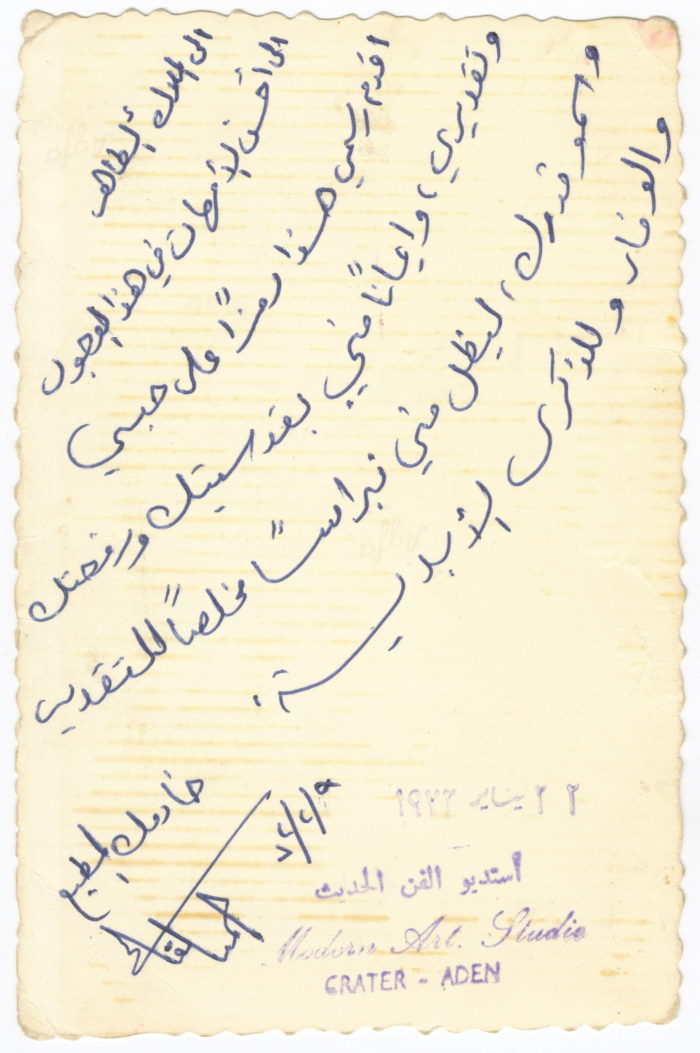 الى الملاك الطاهر
الى أحن الأمهات في هذا الوجود
اقدم رسمي هذا رمزاً على حبي
وتقديري، وإيماناً مني بقدسيتك ورفعتك
وسمو قدرك، ليظل مني نبراساً مخلصاً للتقدير
والوفاء وللذكرى الأبدية.
خادمك المطيع
٢٢ يناير ١٩٧٣
أستديو الفن الحديث
Modern Art. Studio
CRATER - ADEN